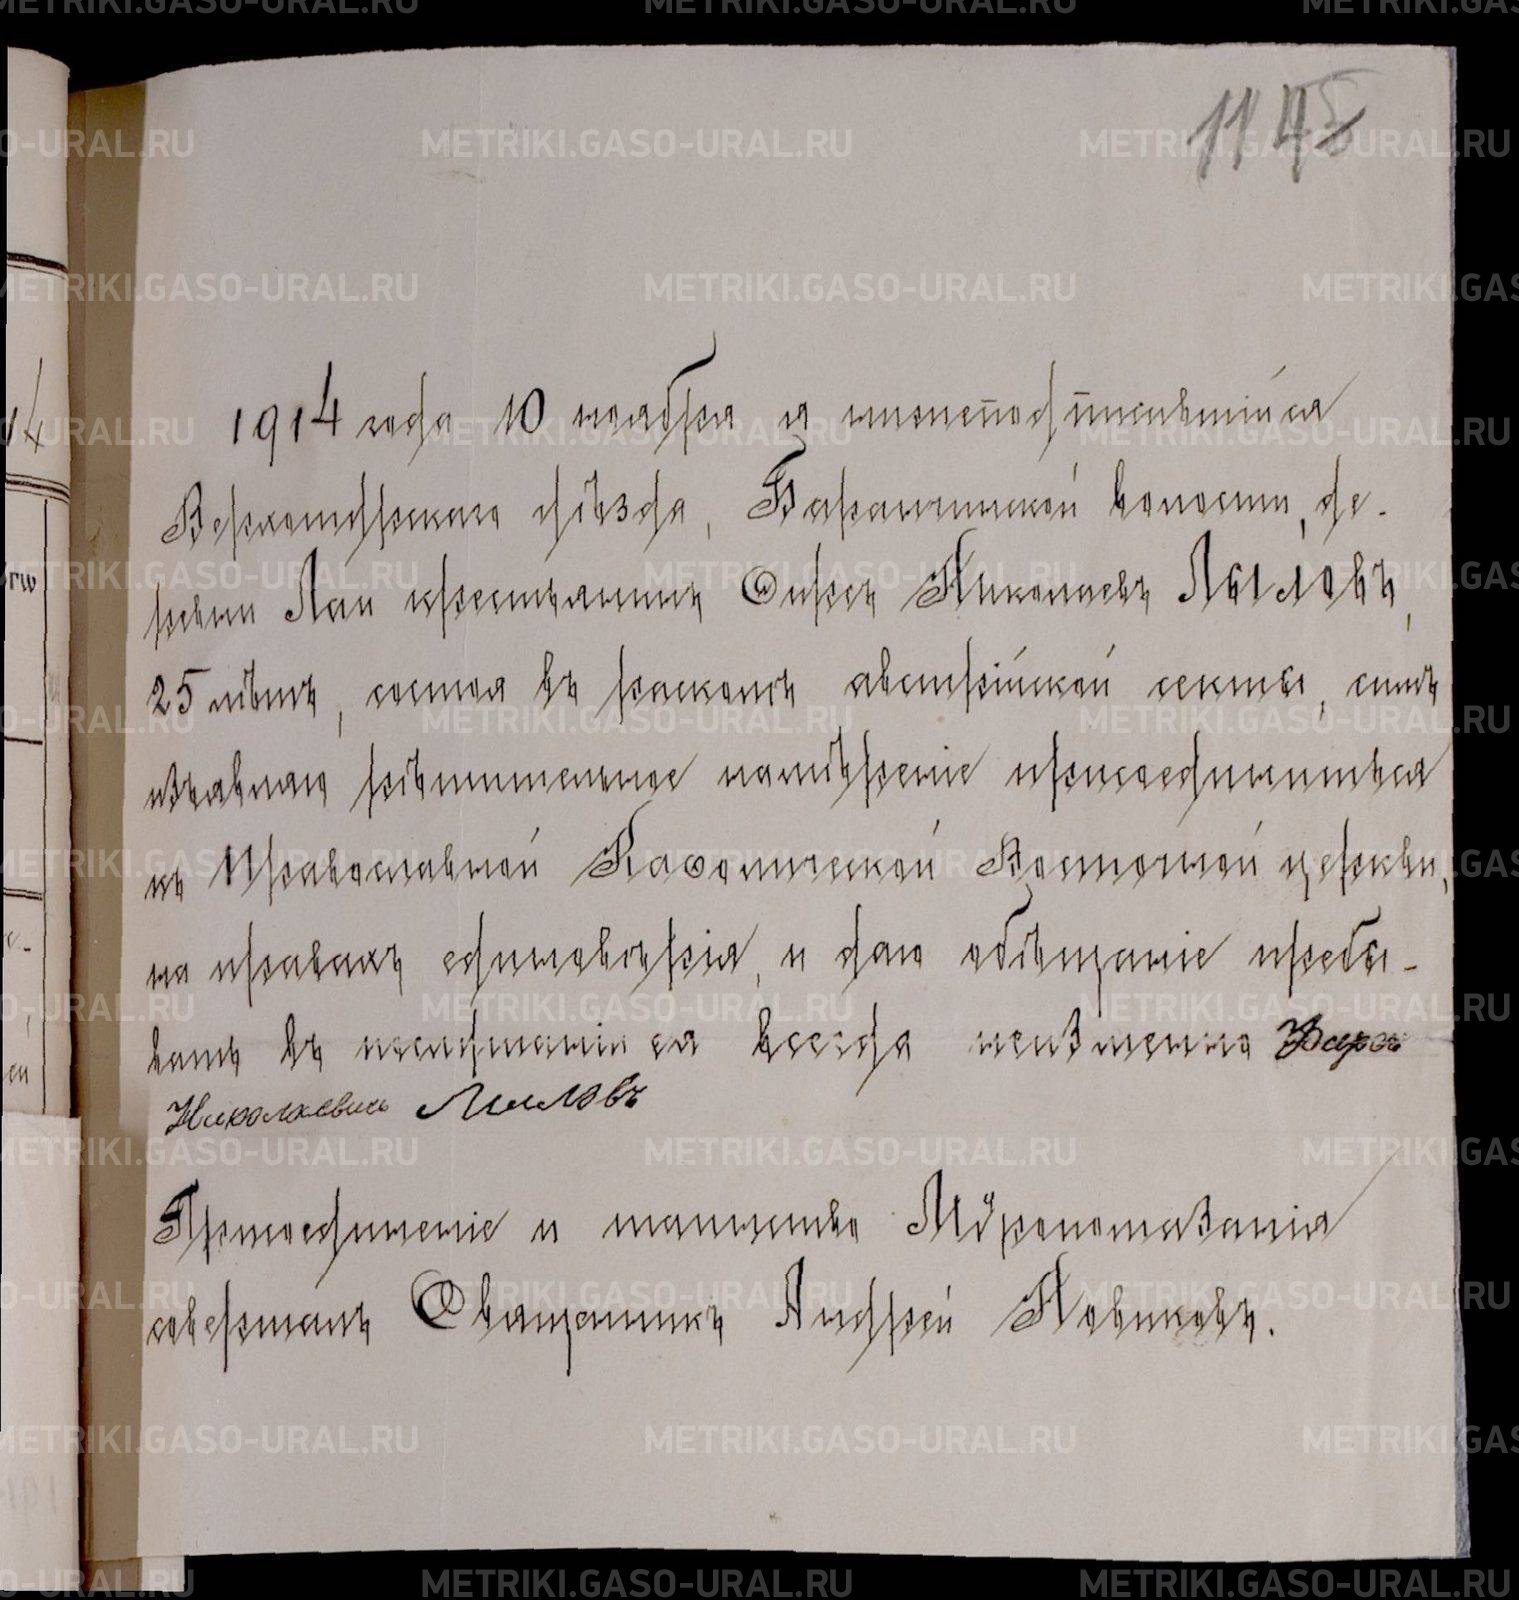 1145
1914 года 10 ноября я нижеподписавшійся
Верхотурскаго уѣзда, Баранчинской волости, де-
ревни Лаи крестьянинъ Фирсъ Николаевъ Лыловъ,
25 лѣтъ, состоя въ расколѣ австрійской секты, симъ
изъявляю рѣшительное намѣреніе присоединиться
къ Православной Каѳолической Восточной церкви,
на правахъ единовѣрія, и даю обѣщаніе пребы-
вать въ послушаніи ея всегда неизменно Фирсъ
Николаевичь Лыловъ
Присоединеніе и таинство Мѵропомазанія
совершалъ Священникъ Андрей Новиковъ.
METRIKI.GASO-URAL.RU